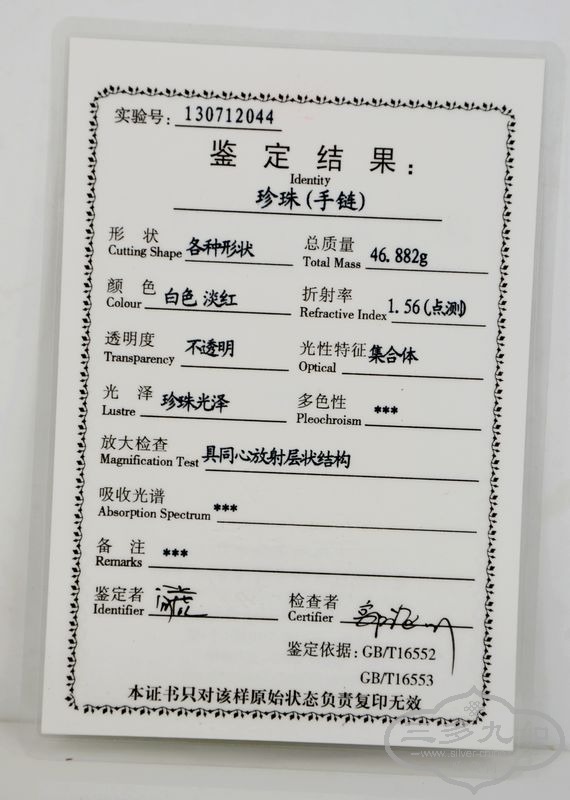 实验号: 130712044
鉴定结果:
Identity
珍珠(手链)
形状 各种形状 总质量 46.882g
Cutting Shape Total Mass
颜色 白色 淡红 折射率 1.56(点测)
Colour Refractive Index
透明度 不透明 光性特征 集合体
Transparency Optical
光泽 珍珠光泽 多色性 ***
Lustre Pleochroism
放大检查 具同心放射层状结构
Magnification Test
吸收光谱 ***
Absorption Spectrum
备注 ***
Remarks
鉴定者 检查者
Identifier Certifier
鉴定依据: GB/T16552
GB/T16553
本证书只对该样原始状态负责复印无效